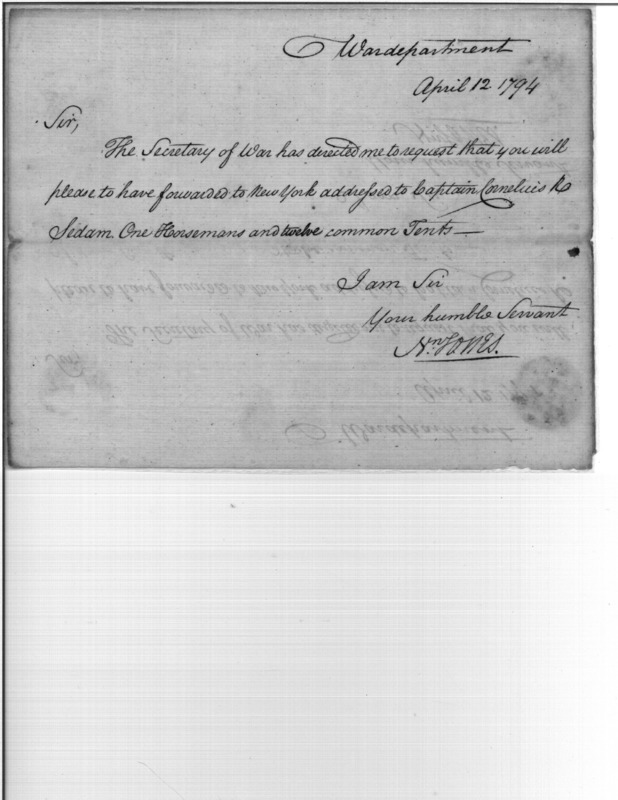 Wardepartment
April 12 1794
Sir,
The Secretary of War has directed me to request that you will
please to have forwarded to New York addressed to Captain Cornelius R
Sedam. One Horsemans and twelve common Tents —
I am Sir
Your humble Servant
Nn Jones.